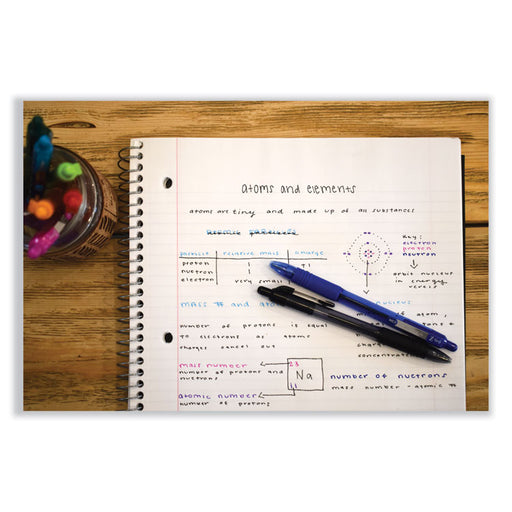 atoms and elements
atoms are tiny and made up of all substances
particle relative mass charge
proton 1 +1
nuetron 1
electron very small
key:
electron
proton
neutron
orbit nucleus
in energy
mass # and
nucleus
number of protons is equal
to electrons as atoms
charges cancel out
of atom,
concentrated
mass number
number of protons and
nuetrons
23
Na
11
number of nuetrons
mass number - atomic #
atomic number
number of protons